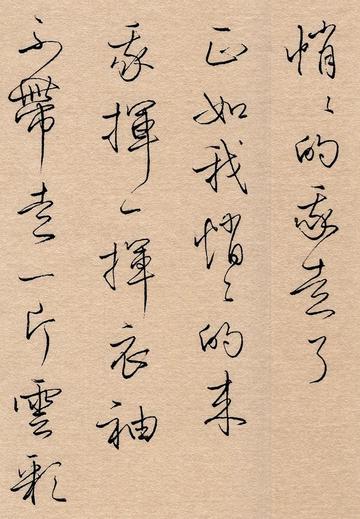 悄悄的我走了
正如我悄悄的来
我揮一揮衣袖
不帶走一片雲彩